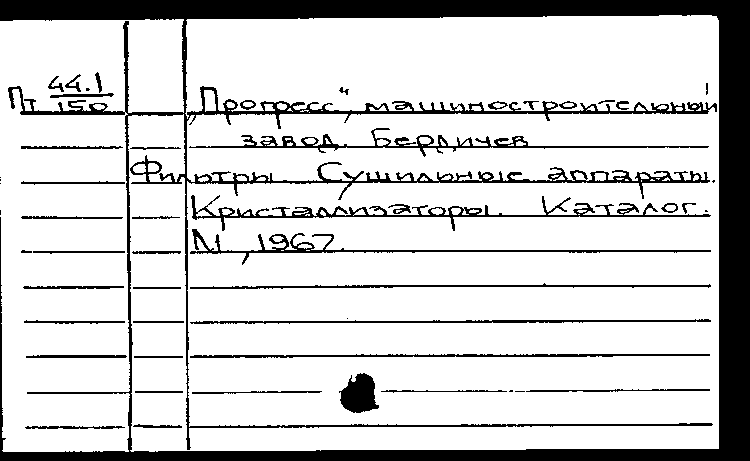 Пт 44.1/150 „Прогресс“, машиностроительный
завод. Бердичев
Фильтры. Сушильные аппараты.
Кристаллизаторы. Каталог.
М., 1967.